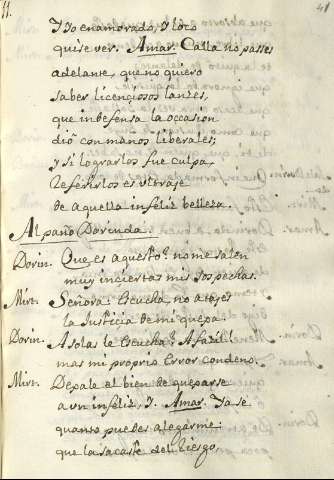 11.
41
Y yo enamorado, y loco
quise ver. Amar. Calla no passes
adelante, que no quiero
saber licençiosos lanzes,
que indefensa la occasion
dió con manos liberales;
y si lograrlos fue culpa,
referirlos es ultraje
de aquella infeliz belleza.
Al paño Dorinda.
Dorin. Que es aquesto? no me salen
muy inciertas mis sospechas.
Mirt. Señora: Escucha, no atajes
la Justicia de mi quexa.
Dorin. A solas le escucha? A fazil!
mas mi proprio error condeno.
Mirt. Dexale el bien de quexarse
a un infeliz, y. Amar. Ya se
quanto puedes alegarme:
que la sacaste del riesgo